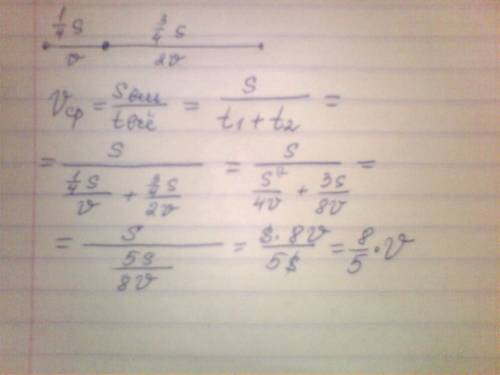 1/4 s 3/4 s
v 2v
Vср = Sвсё / tвсё = S / (t1 + t2) =
= S / ((1/4 S) / v + (3/4 S) / 2v) = S / (S / 4v + 3S / 8v) =
= S / (5S / 8v) = S · 8v / 5S = 8/5 · v